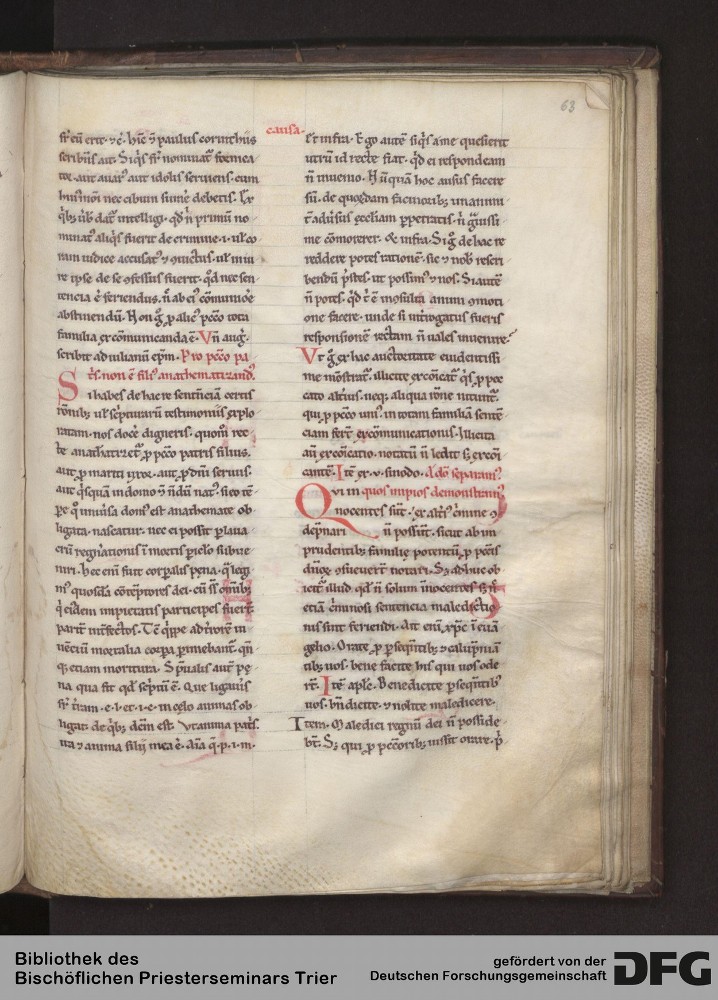 63
causa.
fr̄ cū erit. ⁊c̄. hīc ⁊ paulus corinthiis
scribēs ait. Siq̄s fr̄ nominat᷑ fornica
tor. aut auar⁹ aut idolis seruiens. cum
hui⁹moi nec cibum sumē debetis. Ex
q̄b; ub̄ dat᷑ intelligi. qd̄ n̄ primū no
minat⁹ aliq̄s fuerit de crimine. i. ul̓ co
ram iudice accusat⁹ ⁊ ꝯuict⁹. ul̓ in iu
re ipse de se ꝯfessus fuerit. qd̄ nec sen
tencia ē feriendus. n̄ ab ei⁹ cōmunioē
abstinendū. Non ḡ ꝓ alic⁹ pcc̄o tota
familia excōmunicanda ē. Vn̄ aug̓.
scribit ad iulianū ep̄m. Pro pcc̄o pa
tris non ē fili⁹ anathematizand⁹.
Si habes de hac re sentenciam certis
rōnib; ul̓ sc̄pturarū testimoniis explo
ratam. nos docē digneris. quom̄ rec
te anathatizet᷑ ꝓ pcc̄o patris filius.
aut ꝓ mariti uxor. aut ꝓ dn̄i seruus.
aut q̄squā in domo ⁊ n̄dū nat⁹. si eo tē
pe q̄ uniusa dom⁹ est anathemate ob
ligata. nascatur. nec ei possit ꝑ laua
crū regn̄ationis ī mortis ꝑiclo subue
niri. Hec enī fuit corꝑalis pena. q̄ legi
m⁹ quosdā cōtēptores dei. cū ss̄ omīb;
q̄ eidem impietatis participes fuer̄t.
parit̄ int̄fectos. Tē q̄ippe ad t̄rorē ui
uēciū mortalia corꝑa ꝑimebant᷑. qn̄
q; etiam moritura. Spūalis aut̄ pe
na qua fit qd̄ sc̄ptū ē. Que ligau̓is
sr̄ t̄ram. e. l. et. i. c. in celo animas ob
ligat. de q̄b; dc̄m est. Vt anima patris
ita ⁊ anima filij mea ē. aīa q̄. p. i. m.
Et infra. Ego autē siq̄s a me quesierit
utrū id recte fiat. qd̄ ei respondeam
n̄ inuenio. Nūquā hoc ausus facere
sū. de quordam facinorib; imanit
t̄ adūsus eccliam ꝑpetratis. n̄ g̓uissi
me cōmouerer. Et infra. Si ḡ de hac re
reddere potes rationē. sic ⁊ nob̄ rescri
bendū p̄stes. ut possim⁹ ⁊ nos. Si autē
n̄ potes. qd̄ t̄ ē incōsulta animi ꝯmoti
one facere. unde si int̄rogatus fueris
responsionē rectam n̄ uales inuenire.
Vt ḡ ex hac auctoritate euidentissi
me mōstrat᷑. illicite excōicat᷑ q̄s ꝓ pec
cato alt̄ius. neq; aliqua rōne nitunt᷑.
qui ꝓ pcc̄o uni⁹ in totam familiā sentē
ciam fert̄ excōmunicationis. Illicita
aū excōicatio. notatū n̄ ledit s; excōi
cantē. Itē ex. v. sinodo. Ad̄o separam⁹
Qui in quos impios demonstram⁹
nocentes sūt. ex alt̄i⁹ c̄mine ꝯ
dēpnari n̄ possūt. sicut ab im
prudentib; familie potentū. ꝓ pcc̄is
dn̄or̄ ꝯsueuer̄t notari. S; adhuc ob
icit᷑ illud. qd̄ n̄ solum īnocentes s; n̄
etiā c̄minosi sentencia maledictio
nis sint feriendi. Ait enī xp̄c ī euā
gelio. Orate ꝓ ꝑseqn̄tib; ⁊ calūpniā
tib; uos. bene facite his qui uos ode
rt̄. Itē apl̄s. Benedicite ꝑseqn̄tib⁹
uos. bn̄dicite. ⁊ nolite maledicere.
Item. Maledici regnū dei n̄ posside
bt̄. S; qui ꝓ pecc̄orib; iussit orare. ꝑ
Bibliothek des
Bischöflichen Priesterseminars Trier
gefördert von der
Deutschen Forschungsgemeinschaft
DFG